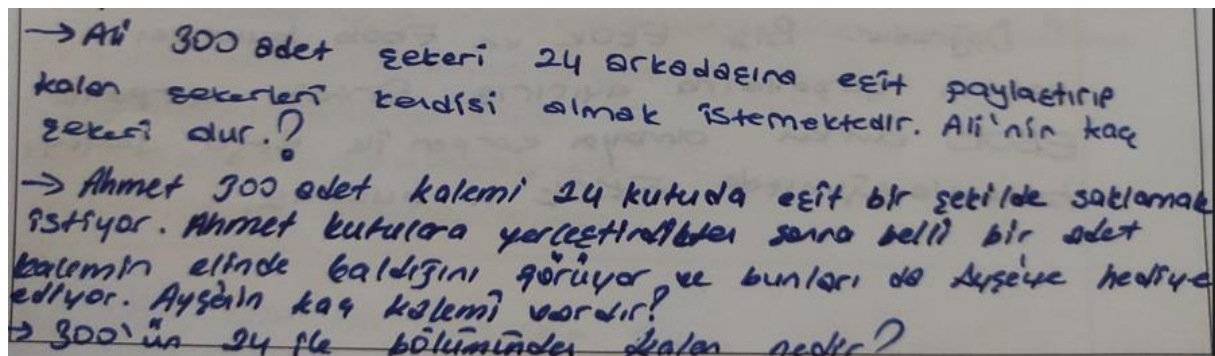 → Ali 300 adet şekeri 24 arkadaşına eşit paylaştırıp
kalan şekerleri kendisi almak istemektedir. Ali'nin kaç
şekeri olur.?
→ Ahmet 300 adet kalemi 24 kutuda eşit bir şekilde saklamak
istiyor. Ahmet kutulara yerleştirdikten sonra belli bir adet
kalemin elinde kaldığını görüyor ve bunları da Ayşe'ye hediye
ediyor. Ayşe'nin kaç kalemi vardır?
→ 300'ün 24 ile bölümünden kalan nedir?